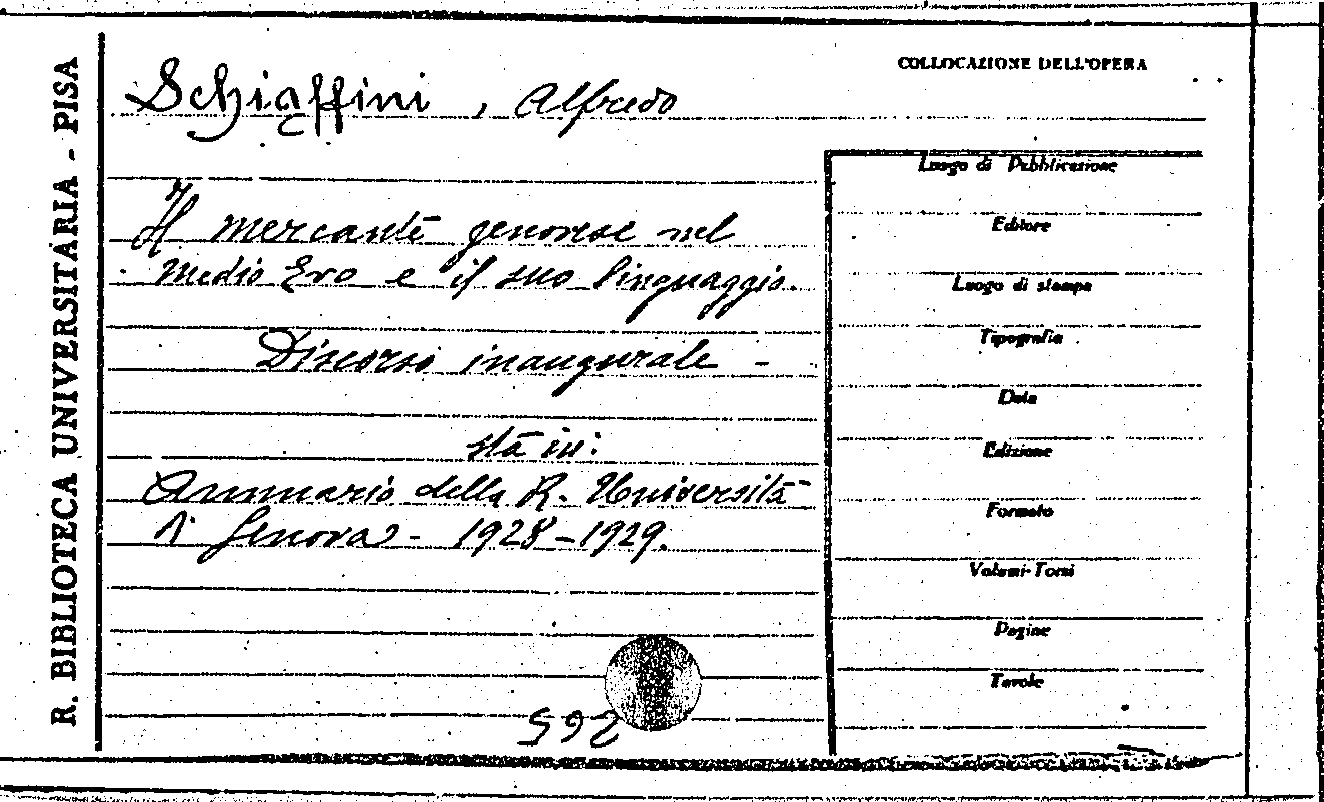 R. BIBLIOTECA UNIVERSITARIA - PISA
COLLOCAZIONE DELL'OPERA
Schiaffini, Alfredo
Il mercante genovese nel
Medio Evo e il suo linguaggio.
Discorso inaugurale -
stà in:
Annuario della R. Università
di Genova - 1928-1929.
Luogo di Pubblicazione
Editore
Luogo di stampa
Tipografia
Data
Edizione
Formato
Volumi-Tomi
Pagine
Tavole